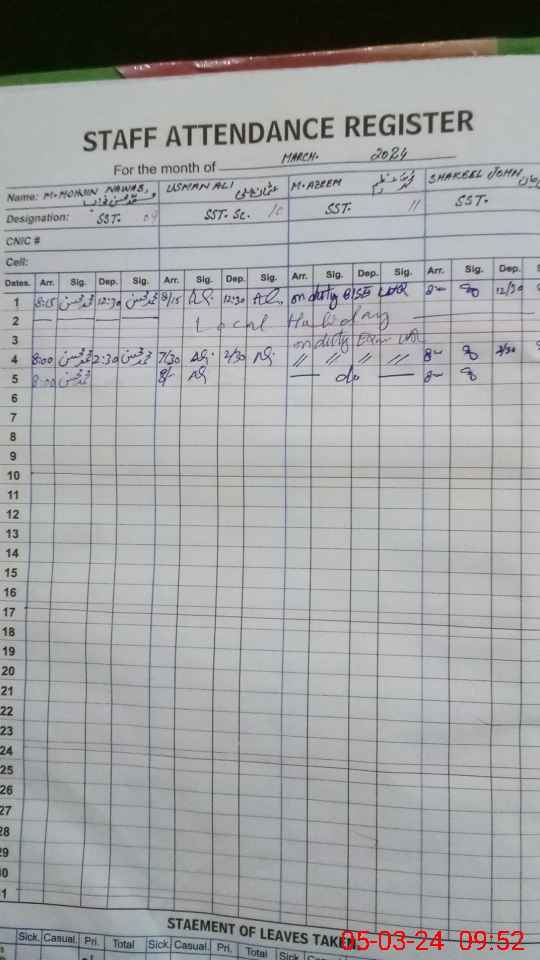 STAFF ATTENDANCE REGISTER
For the month of MARCH. 2024
Name: M. MOHSIN NAWAZ USMAN ALI عثمان علی M. AZEEM محمد عظیم SHAKEEL JOHN
Designation: SST. 09 SST. Sc. 10 SST. 11 SST.
CNIC #
Cell:
Dates. Arr. Sig. Dep. Sig. Arr. Sig. Dep. Sig. Arr. Sig. Dep. Sig. Arr. Sig. Dep. S
1 8:15 محمد محسن 12:30 محمد محسن 8/15 12:30 on duty BISE LHR 8 12/30
2 Local Holiday
3 on duty Exam LHR
4 8:00 محمد محسن 2:30 محمد محسن 7/30 2/30 // // // // 8 2/30
5 8:00 محمد محسن 8/ — do — 8
6
7
8
9
10
11
12
13
14
15
16
17
18
19
20
21
22
23
24
25
26
27
28
29
30
31
STAEMENT OF LEAVES TAKEN
Sick. Casual. Pri. Total Sick. Casual. Pri. Total Sick. Casual. Pri.
05-03-24 09:52